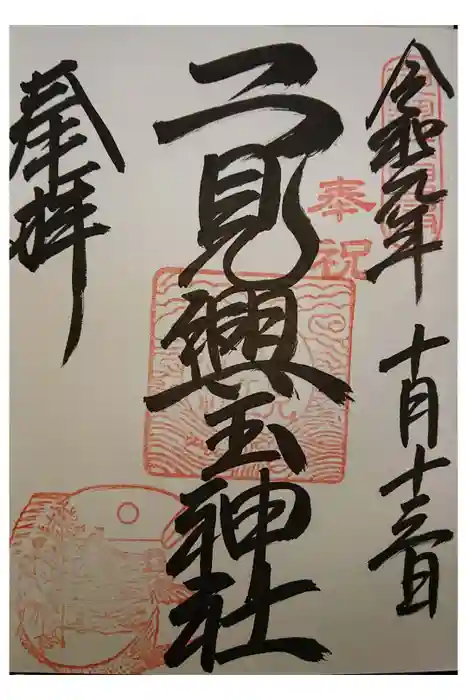 令和元年十月十三日
奉祝
二見興玉神社
奉拝